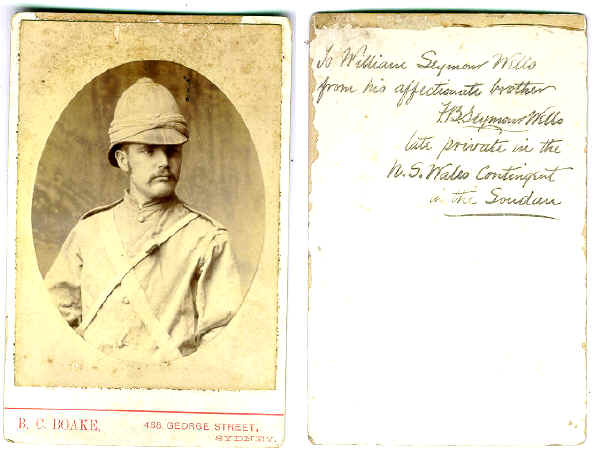 B. C. BOAKE,
488 GEORGE STREET,
SYDNEY.
To William Seymour Wells
from his affectionate brother
F.B. Seymour Wells
late private in the
N. S. Wales Contingent
in the Soudan